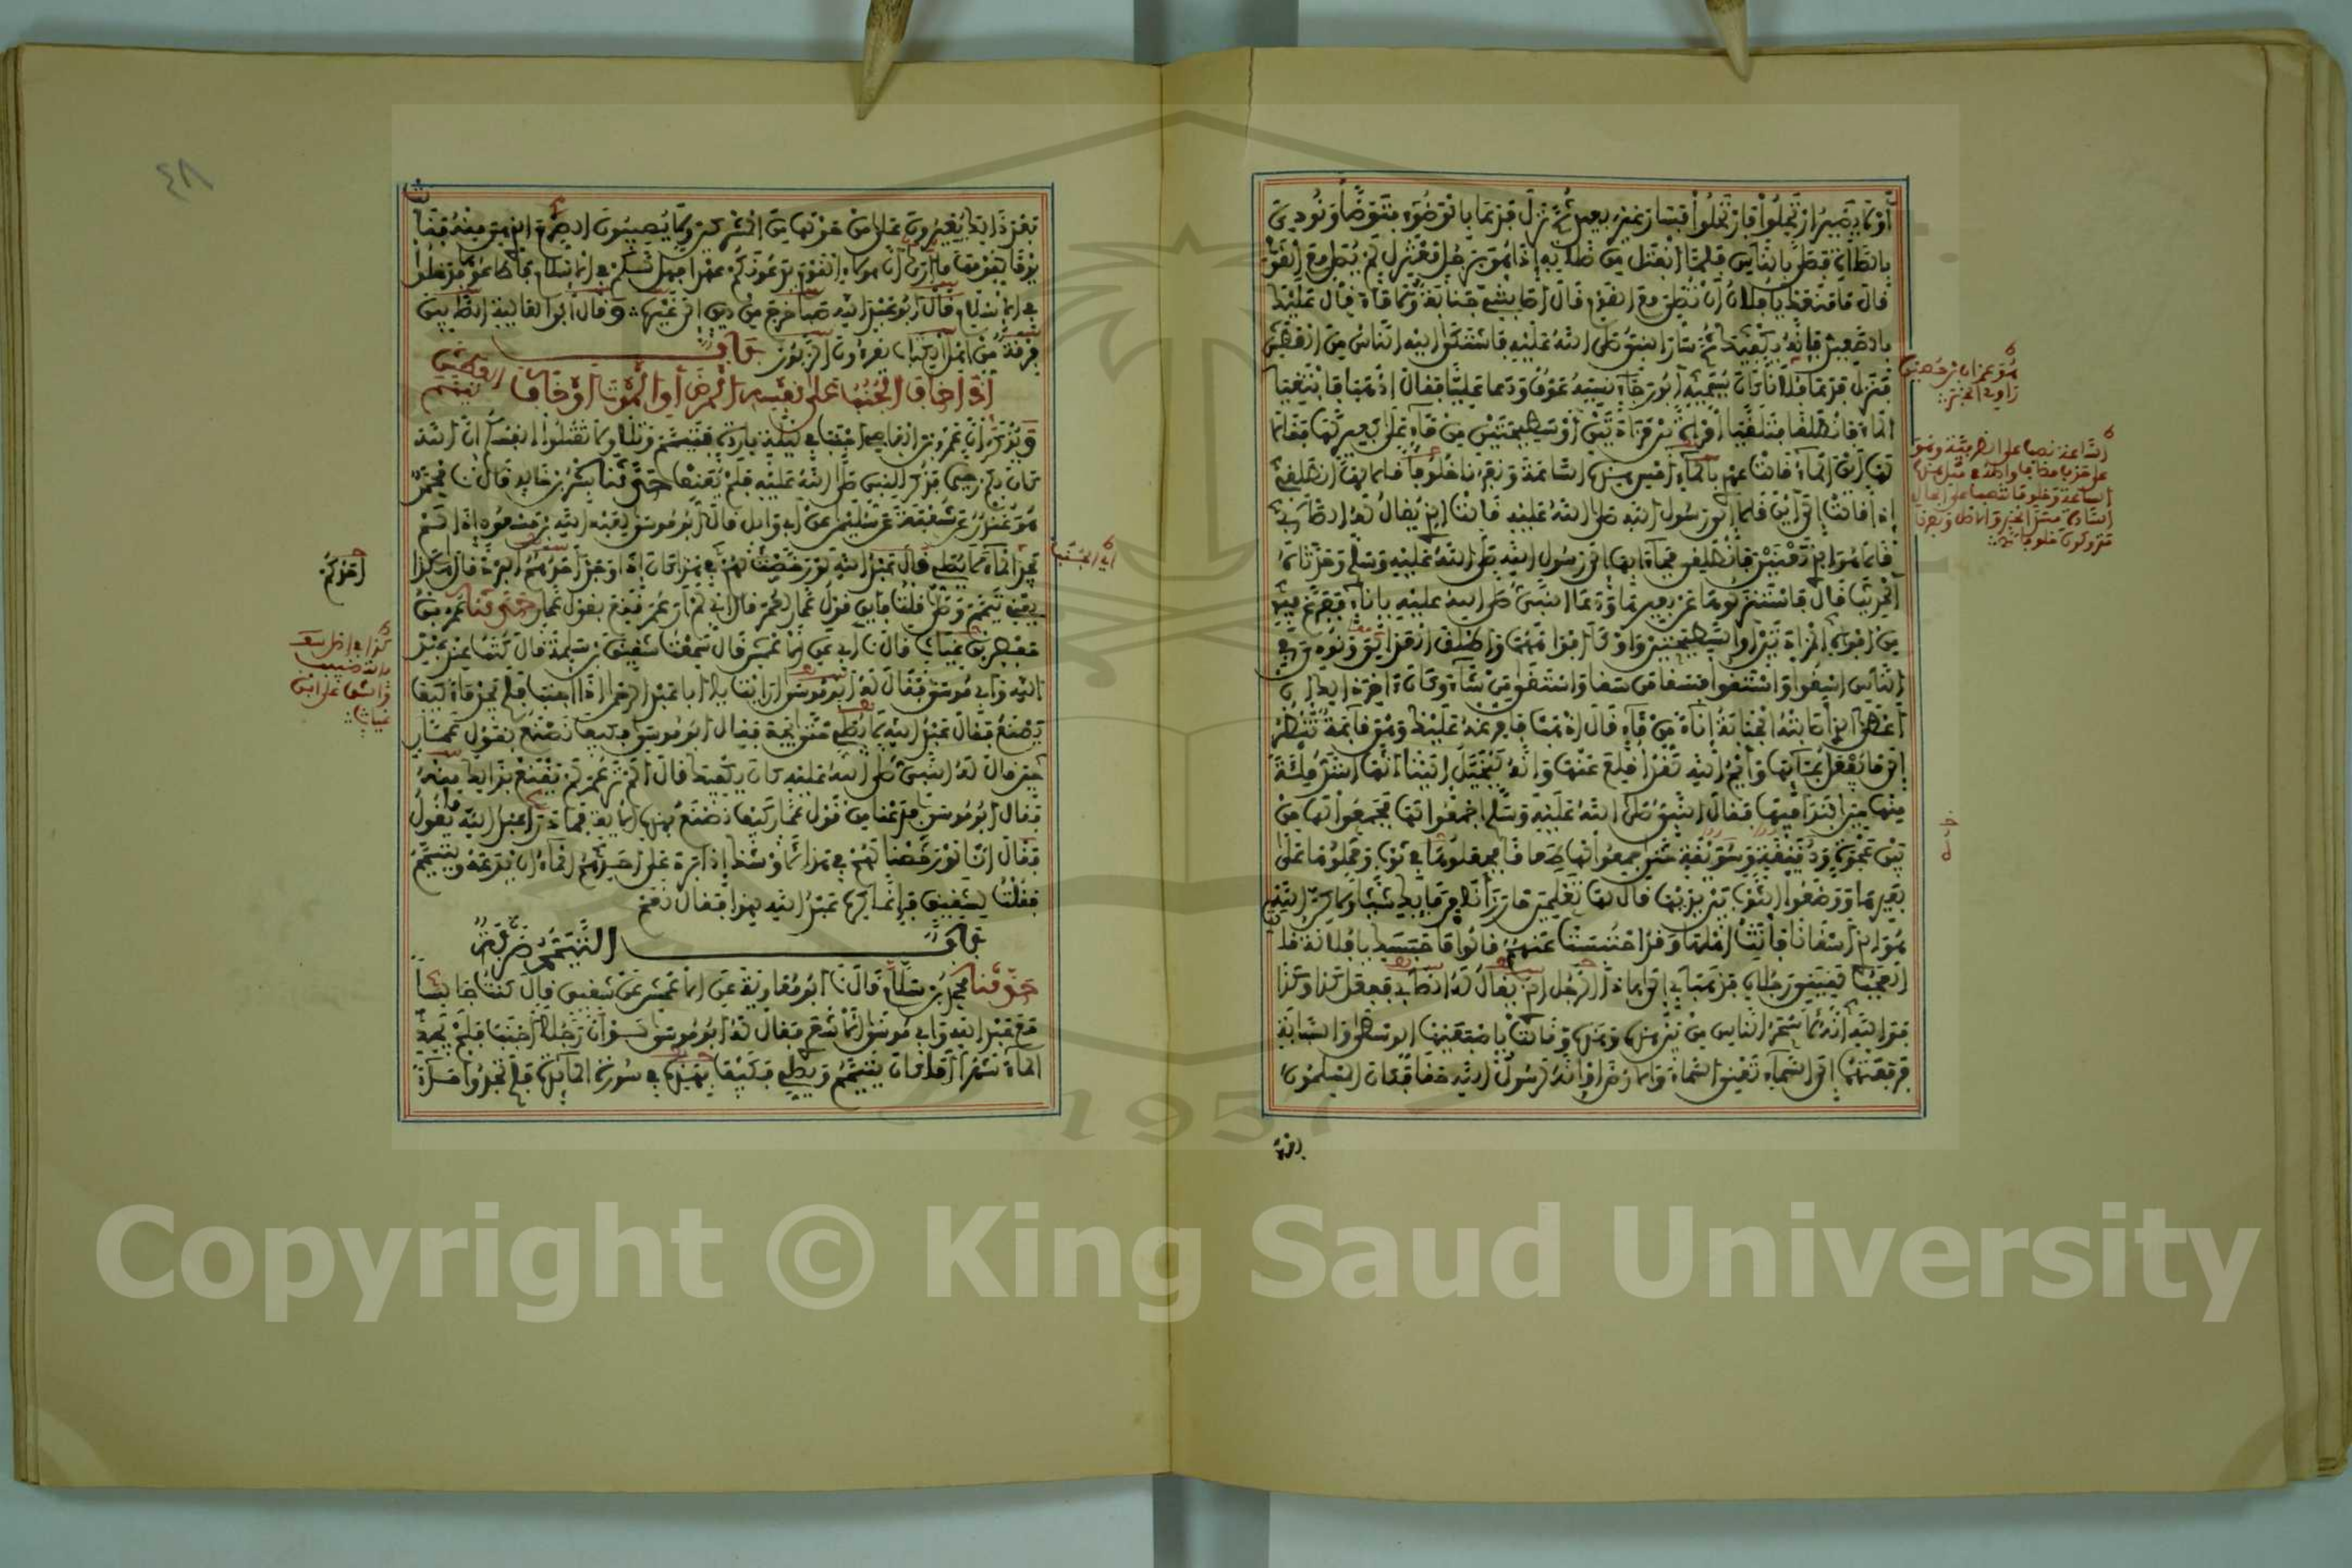 أَوْ لَا يَضِيرُ ارْتَحِلُوا فَارْتَحَلُوا فَسَارَ غَيْرَ بَعِيدٍ ثُمَّ نَزَلَ فَدَعَا بِالْوَضُوءِ فَتَوَضَّأَ وَنُودِيَ
بِالصَّلَاةِ فَصَلَّى بِالنَّاسِ فَلَمَّا انْفَتَلَ مِنْ صَلَاتِهِ إِذَا هُوَ بِرَجُلٍ مُعْتَزِلٍ لَمْ يُصَلِّ مَعَ الْقَوْمِ
قَالَ مَا مَنَعَكَ يَا فُلَانُ أَنْ تُصَلِّيَ مَعَ الْقَوْمِ قَالَ أَصَابَتْنِي جَنَابَةٌ وَلَا مَاءَ قَالَ عَلَيْكَ
بِالصَّعِيدِ فَإِنَّهُ يَكْفِيكَ ثُمَّ سَارَ النَّبِيُّ صَلَّى اللهُ عَلَيْهِ فَاشْتَكَى إِلَيْهِ النَّاسُ مِنَ الْعَطَشِ
فَنَزَلَ فَدَعَا فُلَانًا كَانَ يُسَمِّيهِ أَبُو رَجَاءٍ نَسِيَهُ عَوْفٌ وَدَعَا عَلِيًّا فَقَالَ اذْهَبَا فَابْتَغِيَا
الْمَاءَ فَانْطَلَقَا فَتَلَقَّيَا امْرَأَةً بَيْنَ مَزَادَتَيْنِ أَوْ سَطِيحَتَيْنِ مِنْ مَاءٍ عَلَى بَعِيرٍ لَهَا فَقَالَا
لَهَا أَيْنَ الْمَاءُ قَالَتْ عَهْدِي بِالْمَاءِ أَمْسِ هَذِهِ السَّاعَةَ وَنَفَرُنَا خُلُوفًا قَالَا لَهَا انْطَلِقِي
إِذًا قَالَتْ إِلَى أَيْنَ قَالَا إِلَى رَسُولِ اللهِ صَلَّى اللهُ عَلَيْهِ قَالَتِ الَّذِي يُقَالُ لَهُ الصَّابِئُ
قَالَا هُوَ الَّذِي تَعْنِينَ فَانْطَلِقِي فَجَاءَا بِهَا إِلَى رَسُولِ اللهِ صَلَّى اللهُ عَلَيْهِ وَسَلَّمَ وَحَدَّثَاهُ
الْحَدِيثَ قَالَ فَاسْتَنْزَلُوهَا عَنْ بَعِيرِهَا وَدَعَا النَّبِيُّ صَلَّى اللهُ عَلَيْهِ بِإِنَاءٍ فَفَرَّغَ فِيهِ
مِنْ أَفْوَاهِ الْمَزَادَتَيْنِ أَوِ السَّطِيحَتَيْنِ وَأَوْكَأَ أَفْوَاهَهُمَا وَأَطْلَقَ الْعَزَالِيَ وَنُودِيَ فِي
النَّاسِ اسْقُوا وَاسْتَقُوا فَسَقَى مَنْ سَقَى وَاسْتَقَى مَنْ شَاءَ وَكَانَ آخِرَ ذَلِكَ أَنْ
أَعْطَى الَّذِي أَصَابَتْهُ الْجَنَابَةُ إِنَاءً مِنْ مَاءٍ قَالَ اذْهَبْ فَأَفْرِغْهُ عَلَيْكَ وَهْيَ قَائِمَةٌ تَنْظُرُ
إِلَى مَا يُفْعَلُ بِمَائِهَا وَايْمُ اللهِ لَقَدْ أُقْلِعَ عَنْهَا وَإِنَّهُ لَيُخَيَّلُ إِلَيْنَا أَنَّهَا أَشَدُّ مِلْأَةً
مِنْهَا حِينَ ابْتَدَأَ فِيهَا فَقَالَ النَّبِيُّ صَلَّى اللهُ عَلَيْهِ وَسَلَّمَ اجْمَعُوا لَهَا فَجَمَعُوا لَهَا مِنْ
بَيْنِ عَجْوَةٍ وَدَقِيقَةٍ وَسَوِيقَةٍ حَتَّى جَمَعُوا لَهَا طَعَامًا فَجَعَلُوهَا فِي ثَوْبٍ وَحَمَلُوهَا عَلَى
بَعِيرِهَا وَوَضَعُوا الثَّوْبَ بَيْنَ يَدَيْهَا قَالَ لَهَا تَعْلَمِينَ مَا رَزِئْنَا مِنْ مَائِكِ شَيْئًا وَلَكِنَّ اللهَ
هُوَ الَّذِي أَسْقَانَا فَأَتَتْ أَهْلَهَا وَقَدِ احْتَبَسَتْ عَنْهُمْ قَالُوا مَا حَبَسَكِ يَا فُلَانَةُ قَالَتِ
الْعَجَبُ لَقِيَنِي رَجُلَانِ فَذَهَبَا بِي إِلَى هَذَا الرَّجُلِ الَّذِي يُقَالُ لَهُ الصَّابِئُ فَفَعَلَ كَذَا وَكَذَا
فَوَاللهِ إِنَّهُ لَأَسْحَرُ النَّاسِ مِنْ بَيْنِ هَذِهِ وَهَذِهِ وَقَالَتْ بِإِصْبَعَيْهَا الْوُسْطَى وَالسَّبَّابَةِ
فَرَفَعَتْهُمَا إِلَى السَّمَاءِ تَعْنِي السَّمَاءَ وَالْأَرْضَ أَوْ إِنَّهُ لَرَسُولُ اللهِ حَقًّا فَكَانَ الْمُسْلِمُونَ
هُوَ عِمْرَانُ بْنُ حُصَيْنٍ
رَاوِي الْخَبَرِ
بَعْدَ ذَلِكَ يُغِيرُونَ عَلَى مَنْ حَوْلَهَا مِنَ الْمُشْرِكِينَ وَلَا يُصِيبُونَ الصِّرْمَ الَّذِي هِيَ مِنْهُ فَقَالَتْ
يَوْمًا لِقَوْمِهَا مَا أُرَى أَنَّ هَؤُلَاءِ الْقَوْمَ يَدَعُونَكُمْ عَمْدًا فَهَلْ لَكُمْ فِي الْإِسْلَامِ فَأَطَاعُوهَا فَدَخَلُوا
فِي الْإِسْلَامِ قَالَ أَبُو عَبْدِ اللهِ صَبَأَ خَرَجَ مِنْ دِينٍ إِلَى غَيْرِهِ وَقَالَ أَبُو الْعَالِيَةِ الصَّابِئِينَ
فِرْقَةٌ مِنْ أَهْلِ الْكِتَابِ يَقْرَءُونَ الزَّبُورَ بَاب
إِذَا خَافَ الْجُنُبُ عَلَى نَفْسِهِ الْمَرَضَ أَوِ الْمَوْتَ أَوْ خَافَ الْعَطَشَ تَيَمَّمَ
وَيُذْكَرُ أَنَّ عَمْرَو بْنَ الْعَاصِي أَجْنَبَ فِي لَيْلَةٍ بَارِدَةٍ فَتَيَمَّمَ وَتَلَا وَلَا تَقْتُلُوا أَنْفُسَكُمْ إِنَّ اللهَ
كَانَ بِكُمْ رَحِيمًا فَذُكِرَ لِلنَّبِيِّ صَلَّى اللهُ عَلَيْهِ فَلَمْ يُعَنِّفْ حَدَّثَنَا بِشْرُ بْنُ خَالِدٍ قَالَ نَا مُحَمَّدٌ
هُوَ غُنْدَرٌ عَنْ شُعْبَةَ عَنْ سُلَيْمَانَ عَنْ أَبِي وَائِلٍ قَالَ أَبُو مُوسَى لِعَبْدِ اللهِ بْنِ مَسْعُودٍ إِذَا لَمْ
يَجِدِ الْمَاءَ لَا يُصَلِّي قَالَ عَبْدُ اللهِ لَوْ رَخَّصْتُ لَهُمْ فِي هَذَا كَانَ إِذَا وَجَدَ أَحَدُهُمُ الْبَرْدَ قَالَ هَكَذَا
يَعْنِي تَيَمَّمَ وَصَلَّى قُلْتُ فَأَيْنَ قَوْلُ عَمَّارٍ لِعُمَرَ قَالَ إِنِّي لَمْ أَرَ عُمَرَ قَنِعَ بِقَوْلِ عَمَّارٍ حَدَّثَنَا عُمَرُ بْنُ
حَفْصِ بْنِ غِيَاثٍ قَالَ نَا أَبِي عَنِ الْأَعْمَشِ قَالَ سَمِعْتُ شَقِيقَ بْنَ سَلَمَةَ قَالَ كُنْتُ عِنْدَ عَبْدِ
اللهِ وَأَبِي مُوسَى فَقَالَ لَهُ أَبُو مُوسَى أَرَأَيْتَ يَا أَبَا عَبْدِ الرَّحْمَنِ إِذَا أَجْنَبَ فَلَمْ يَجِدْ مَاءً كَيْفَ
يَصْنَعُ فَقَالَ عَبْدُ اللهِ لَا يُصَلِّي حَتَّى يَجِدَ فَقَالَ أَبُو مُوسَى فَكَيْفَ تَصْنَعُ بِقَوْلِ عَمَّارٍ
حِينَ قَالَ لَهُ النَّبِيُّ صَلَّى اللهُ عَلَيْهِ كَانَ يَكْفِيكَ قَالَ أَلَمْ تَرَ عُمَرَ لَمْ يَقْنَعْ بِذَلِكَ مِنْهُ
فَقَالَ أَبُو مُوسَى فَدَعْنَا مِنْ قَوْلِ عَمَّارٍ كَيْفَ تَصْنَعُ بِهَذِهِ الْآيَةِ فَمَا دَرَى عَبْدُ اللهِ مَا يَقُولُ
فَقَالَ إِنَّا لَوْ رَخَّصْنَا لَهُمْ فِي هَذَا لَأَوْشَكَ إِذَا بَرَدَ عَلَى أَحَدِهِمُ الْمَاءُ أَنْ يَدَعَهُ وَيَتَيَمَّمَ
فَقُلْتُ لِشَقِيقٍ فَإِنَّمَا كَرِهَ عَبْدُ اللهِ لِهَذَا فَقَالَ نَعَمْ
بَاب التَّيَمُّمُ ضَرْبَةٌ
حَدَّثَنَا مُحَمَّدُ بْنُ سَلَامٍ قَالَ نَا أَبُو مُعَاوِيَةَ عَنِ الْأَعْمَشِ عَنْ شَقِيقٍ قَالَ كُنْتُ جَالِسًا
مَعَ عَبْدِ اللهِ وَأَبِي مُوسَى الْأَشْعَرِيِّ فَقَالَ لَهُ أَبُو مُوسَى لَوْ أَنَّ رَجُلًا أَجْنَبَ فَلَمْ يَجِدِ
الْمَاءَ شَهْرًا أَمَا كَانَ يَتَيَمَّمُ وَيُصَلِّي فَكَيْفَ بِهَذِهِ فِي سُورَةِ الْمَائِدَةِ فَلَمْ تَجِدُوا مَاءً
أَحَدُكُمُ
٤٨
Copyright © King Saud University
1957